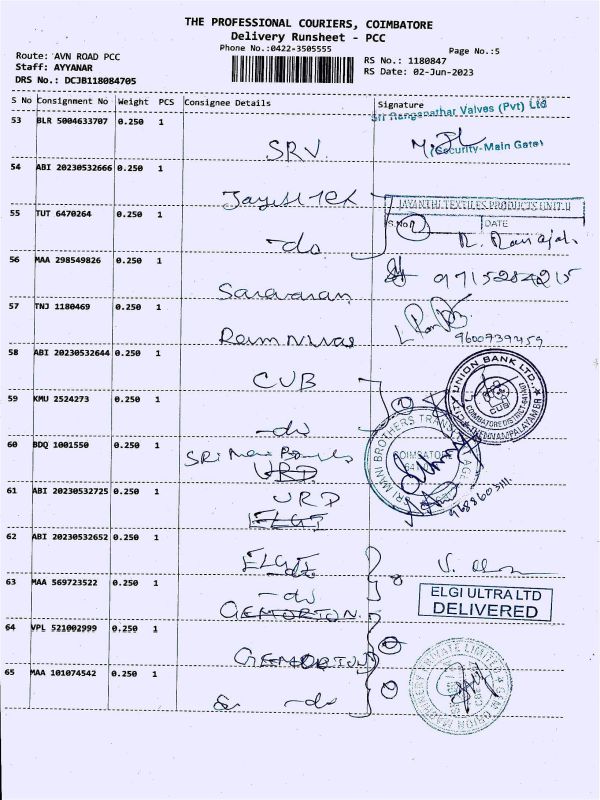 THE PROFESSIONAL COURIERS, COIMBATORE
Delivery Runsheet - PCC
Phone No.:0422-3505555
Page No.:5
Route: AVN ROAD PCC
Staff: AYYANAR
DRS No.: DCJB118084705
RS No.: 1180847
RS Date: 02-Jun-2023
S No Consignment No Weight PCS Consignee Details Signature
Sri Ranganathar Valves (Pvt) Ltd
53 BLR 5004633707 0.250 1
SRV
(Security-Main Gate)
54 ABI 20230532666 0.250 1
JAYANTHI TEXTILES PRODUCTS UNIT.II
55 TUT 6470264 0.250 1
DATE
-do
56 MAA 298549826 0.250 1
Saravanan
9715284215
57 TNJ 1180469 0.250 1
9600939459
58 ABI 20230532644 0.250 1
CUB
CITY UNION BANK LTD.,
CUB
59 KMU 2524273 0.250 1
-do
SRI MANI BROTHERS TRANS
COIMBATORE
60 BDQ 1001550 0.250 1
URD
61 ABI 20230532725 0.250 1
URD
ELGI
62 ABI 20230532652 0.250 1
ELGI
-do
63 MAA 569723522 0.250 1
-do
GEMORTON
ELGI ULTRA LTD
DELIVERED
64 VPL 521002999 0.250 1
GEMORTON
65 MAA 101074542 0.250 1
-do